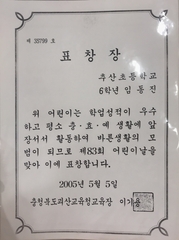 제 38799 호
표 창 장
추산초등학교
6학년 임 동 진
위 어린이는 학업성적이 우수
하고 평소 충·효·예 생활에 앞
장서서 활동하여 바른생활의 모
범이 되므로 제83회 어린이날을
맞아 이에 표창합니다.
2005년 5월 5일
충청북도괴산교육청교육장 이가용